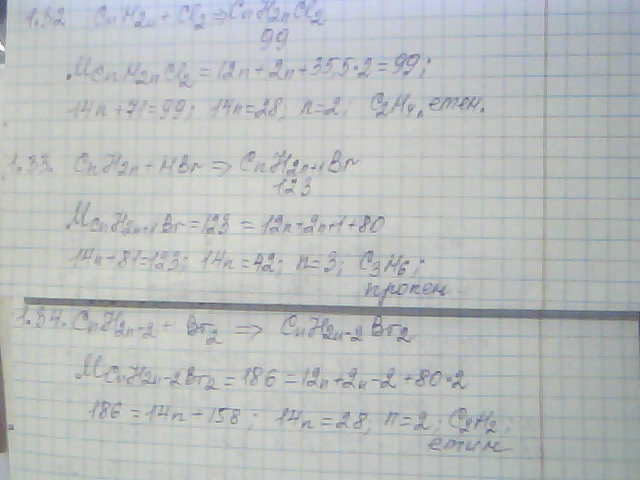 1.32 CnH2n + Cl2 ⇒ CnH2nCl2
99
MCnH2nCl2 = 12n + 2n + 35,5·2 = 99;
14n + 71 = 99; 14n = 28; n = 2, C2H4, етен.
1.33. CnH2n + HBr ⇒ CnH2n+1Br
123
MCnH2n+1Br = 123 = 12n + 2n + 1 + 80
14n + 81 = 123; 14n = 42; n = 3; C3H6;
пропен.
1.34. CnH2n-2 + Br2 ⇒ CnH2n-2Br2
MCnH2n-2Br2 = 186 = 12n + 2n - 2 + 80·2
186 = 14n + 158; 14n = 28; n = 2; C2H2,
етин